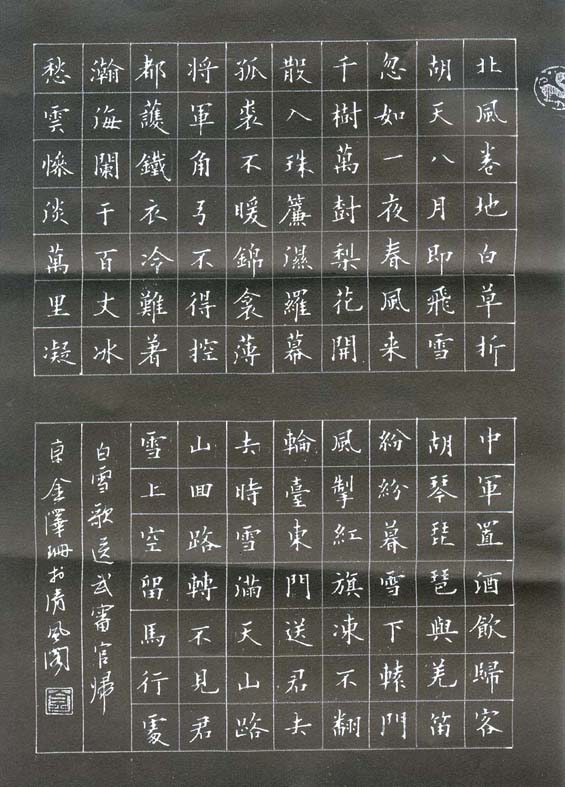 北風卷地白草折
胡天八月即飛雪
忽如一夜春風来
千樹萬封梨花開
散入珠簾濕羅幕
狐裘不暖錦衾薄
将軍角弓不得控
都護鐵衣冷難著
瀚海闌干百丈冰
愁雲惨淡萬里凝
中軍置酒飲歸客
胡琴琵琶與羌笛
紛紛暮雪下轅門
風掣紅旗凍不翻
輪臺東門送君去
去時雪滿天山路
山回路轉不見君
雪上空留馬行處
白雪歌送武審官帰
京金澤珊於清風閣